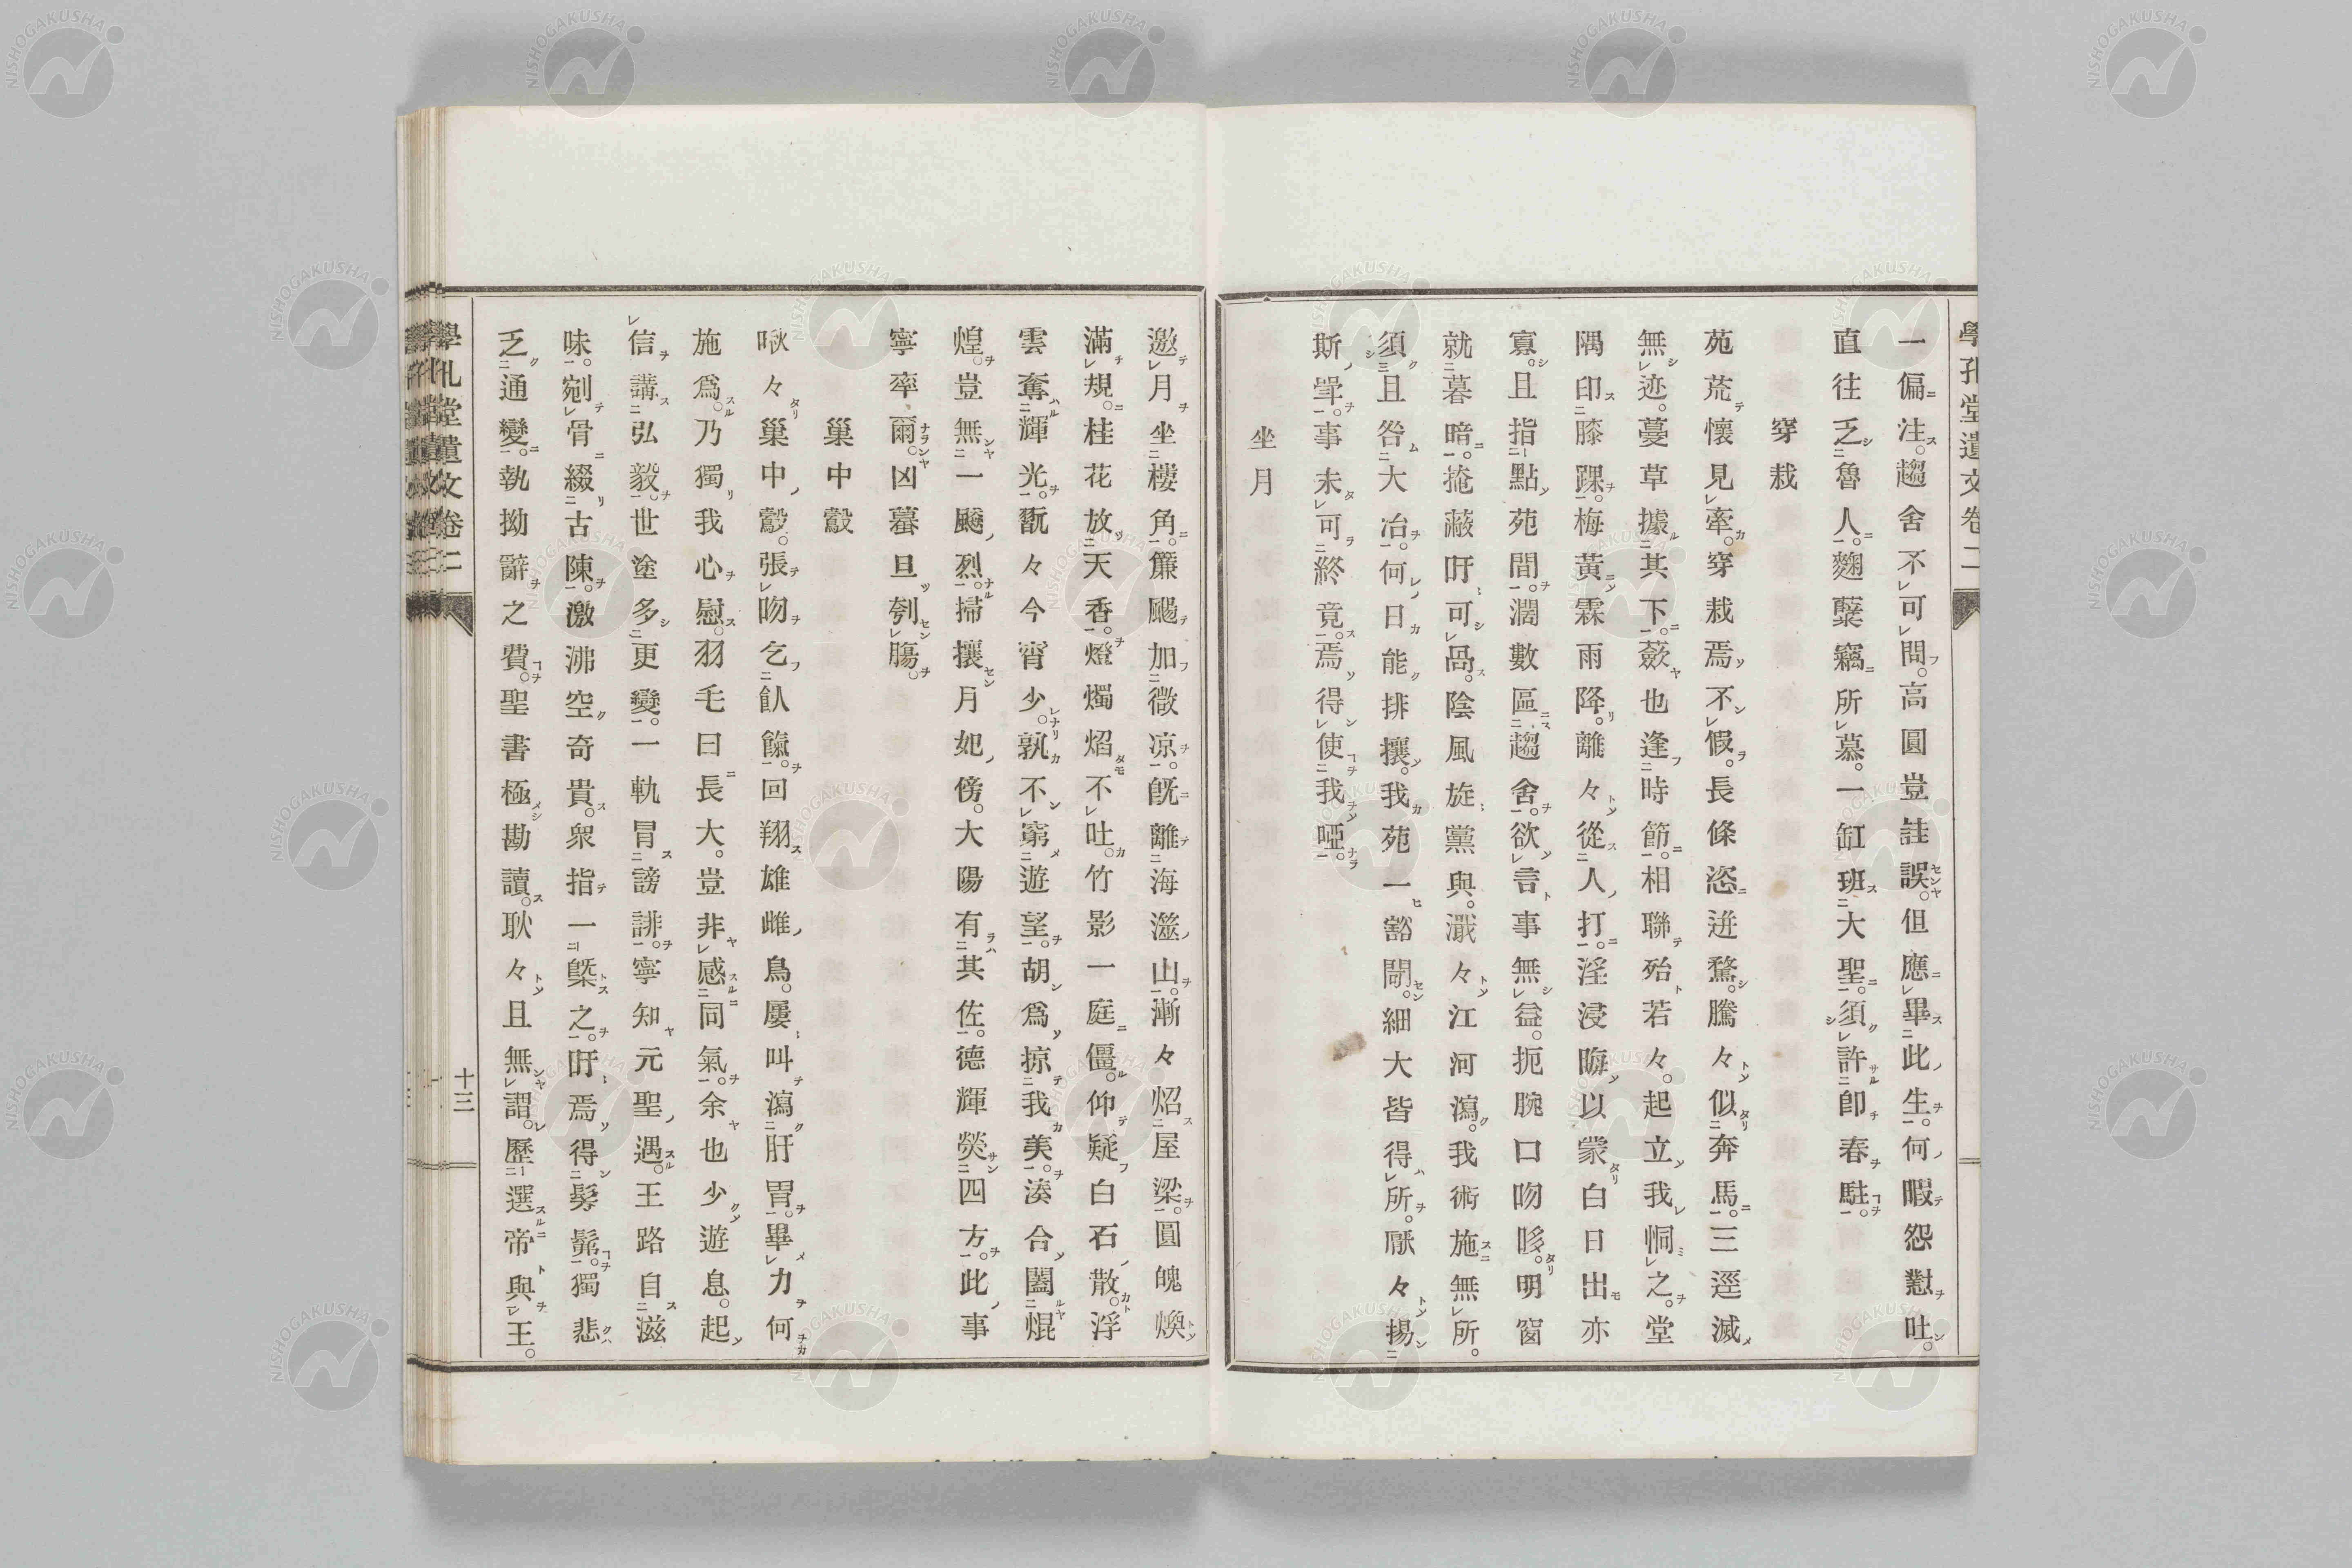 學孔堂遺文卷二
一偏注。趨舍不可問。高圓豈詿誤。但應畢此生。何暇怨懟吐。
直往乏魯人。麴蘖竊所慕。一缸班大聖。須許卽春駐。
穿栽
苑荒懷見牽。穿栽焉不假。長條恣迸騖。騰々似奔馬。三逕滅
無迹。蔓草據其下。蕨也逢時節。相聯殆若々。起立我恫之。堂
隅印膝踝。梅黃霖雨降。離々從人打。淫浸晦以蒙白日出亦
寡。且指點苑間。濶數區趨舍。欲言事無益。扼腕口吻哆。明窗
就暮暗。掩蔽吁可咼。陰風旋黨與。濈々江河瀉。我術施無所。
須且咎大冶。何日能排攘。我苑一豁閜。細大皆得所。厭々揚
斯斝。事未可終竟。焉得使我啞。
坐月
邀月坐樓角。簾颸加微凉。旣離海澨山。漸々炤屋梁。圓魄煥
滿規。桂花放天香。燈燭焰不吐。竹影一庭僵。仰疑白石散。浮
雲奪輝光。翫々今宵少。孰不窮遊望。胡爲掠我美。湊合闔焜
煌。豈無一飈烈。掃攘月妃傍。大陽有其佐。德輝熒四方。此事
寧率爾。凶蟇旦刳膓。
巢中鷇
啾々巢中鷇。張吻乞飤餼。回翔雄雌鳥。屢叫瀉肝胃。畢力何
施爲。乃獨我心慰。羽毛曰長大。豈非感同氣。余也少遊息。起
信講弘毅。世塗多更變。一軌冒謗誹。寧知元聖遇。王路自滋
味。剜骨綴古陳。激沸空奇貴。衆指一槩之。吁焉得髣髴。獨悲
乏通變。執拗辭之費。聖書極勘讀。耿々且無謂。歷選帝與王。
學孔堂遺文卷二
十三